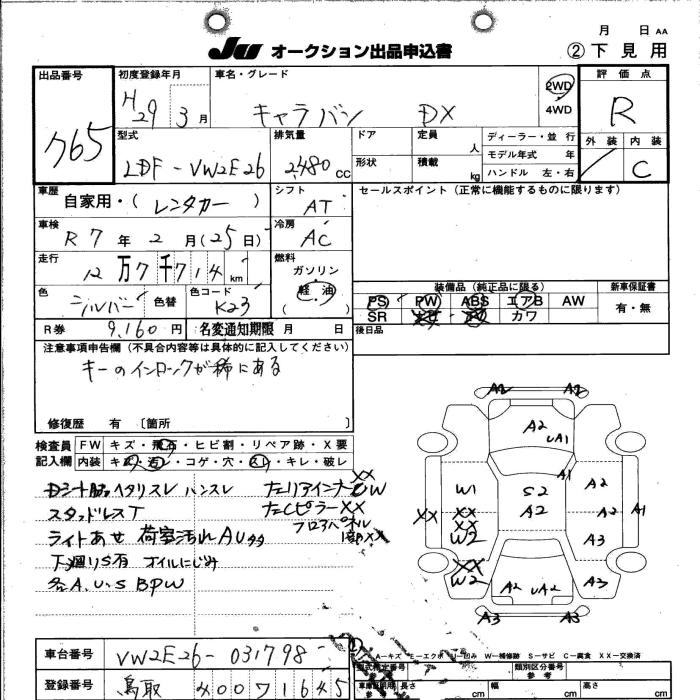 月 日 AA
JU オークション出品申込書 ②下見用
出品番号 初度登録年月 車名・グレード 評価点
H29 3月 キャラバン DX 2WD 4WD R
765 型式 排気量 ドア 定員 人 ディーラー・並行 外装 内装
LDF-VW2E26 2,480cc 形状 積載 kg モデル年式 年 C
ハンドル 左・右
車歴 自家用・(レンタカー) シフト AT セールスポイント(正常に機能するものに限ります)
車検 R7年2月(25日) 冷房 AC
走行 12万7千714km 燃料 ガソリン 軽油 ( )
装備品(純正品に限る) 新車保証書
色 シルバー 色替 色コード K23 PS PW ABS エアB AW 有・無
SR カワ
R券 9,160円 名変通知期限 月 日 後日品
注意事項申告欄(不具合内容等は具体的に記入してください)
キーのインロックが稀にある
修復歴 有 〔箇所 〕
検査員 FW キズ・飛石・ヒビ割・リペア跡・X要
記入欄 内装 キズ・汚レ・コゲ・穴・スレ・キレ・破レ
スタッドレスT
ライトあせ 荷室汚れAU多
下廻りS有 オイルにじみ
各A.U.S BPW
A2 A2
A2
UA1
A1
W1 S2 A2
XX XX A2 A1
XX
W2 A3
XX
W2 A2 UA2 A3
A3 A3
A-キズ E-エクボ U-凹み W-補修跡 S-サビ C-腐食 XX-交換済
車台番号 VW2E26-031798 類別区分番号
参考
登録番号 鳥取 400 71645 長さ cm 幅 cm 高さ cm